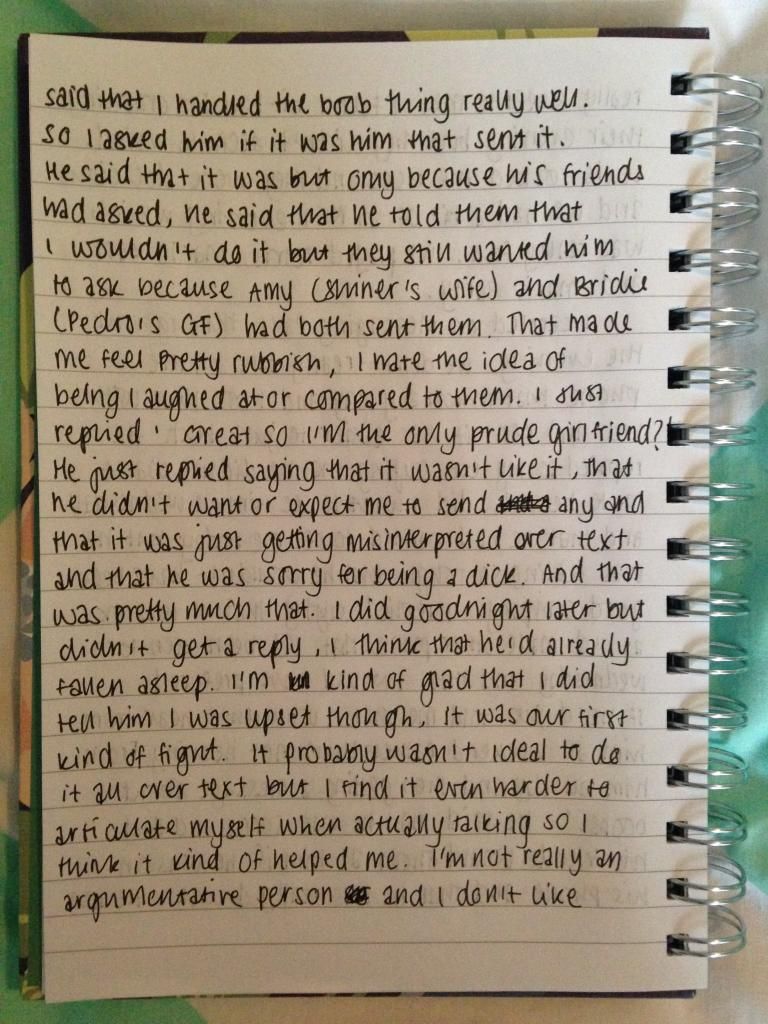 said that I handled the boob thing really well.
So I asked him if it was him that sent it.
He said that it was but only because his friends
had asked, he said that he told them that
I wouldn't do it but they still wanted him
to ask because Amy (Shiner's wife) and Bridie
(Pedro's GF) had both sent them. That made
me feel pretty rubbish, I hate the idea of
being laughed at or compared to them. I just
replied 'Great so I'm the only prude girlfriend?'
He just replied saying that it wasn't like it, that
he didn't want or expect me to send any and
that it was just getting misinterpreted over text
and that he was sorry for being a dick. And that
was pretty much that. I did goodnight later but
didn't get a reply, I think that he'd already
fallen asleep. I'm kind of glad that I did
tell him I was upset though, it was our first
kind of fight. It probably wasn't ideal to do
it all over text but I find it even harder to
articulate myself when actually talking so I
think it kind of helped me. I'm not really an
argumentative person and I don't like